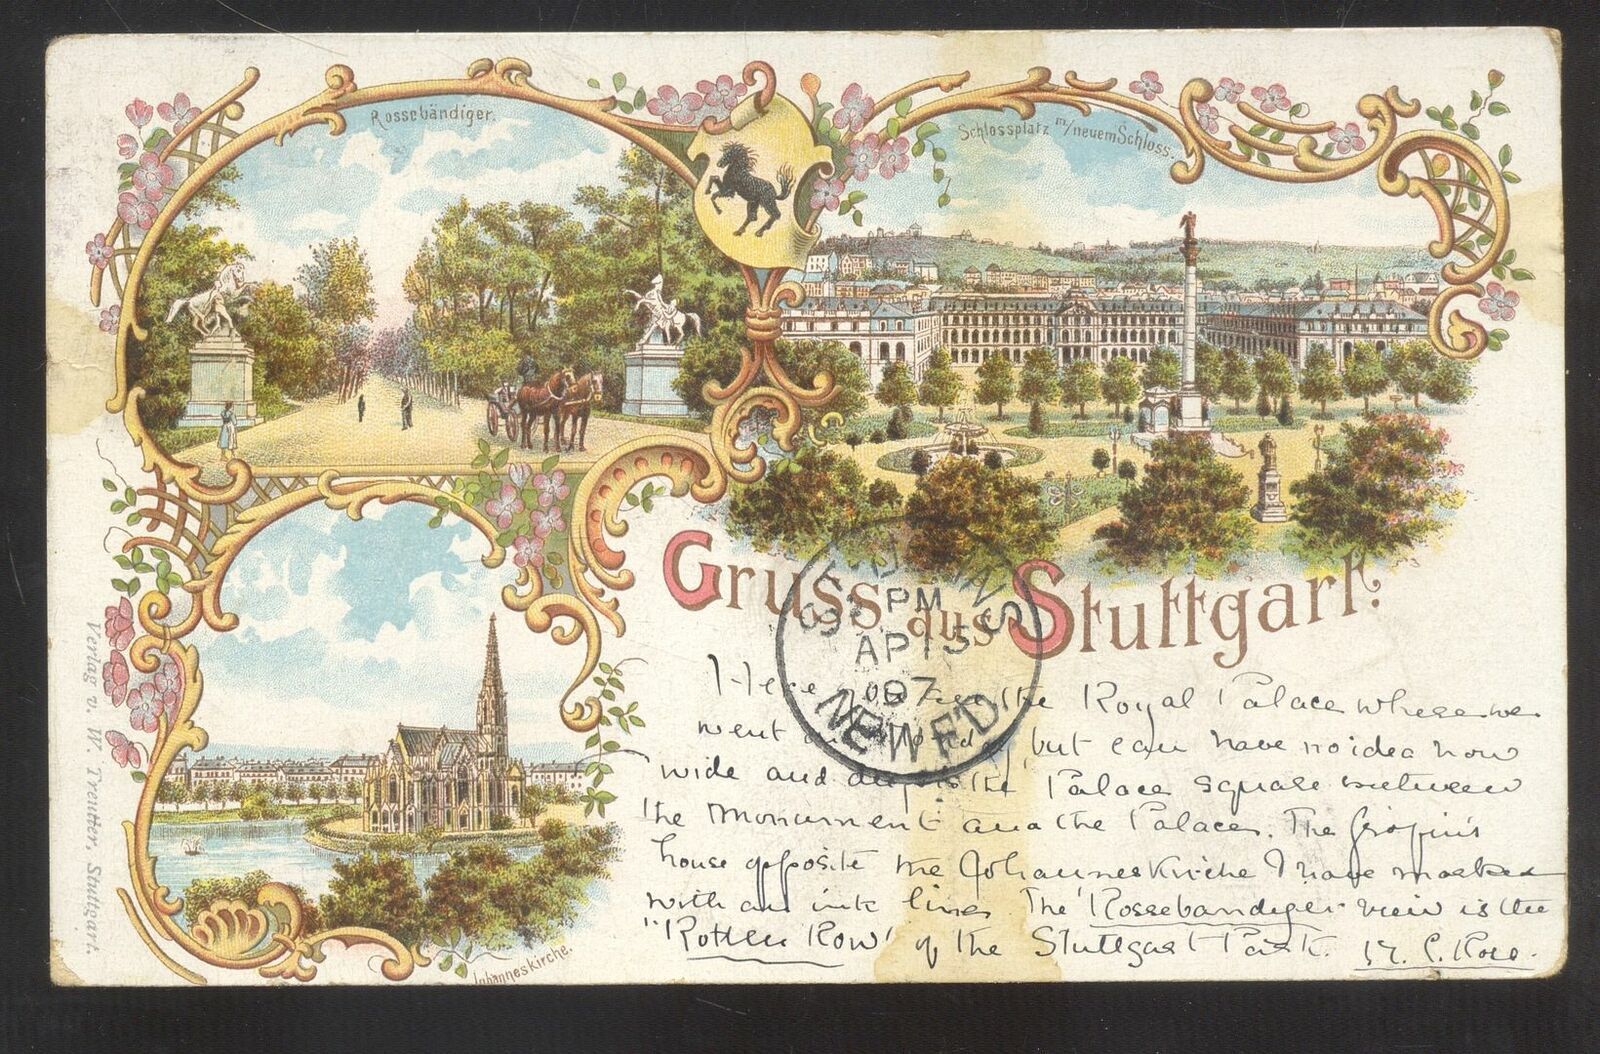 Rossebändiger.
Schlossplatz m/neuem Schloss.
Gruss aus Stuttgart.
ST. JOHN'S
PM
AP 15
07
NEWF'D
Here you see the Royal Palace where we
went but can have no idea how
wide and deep is the Palace square between
the Monument and the Palaces. The
house opposite the Johanneskirche I have marked
with an ink line. The "Rossebandiger" view is the
"Rotten Row" of the Stuttgart Park.
Johanneskirche.
Verlag v. W. Treutter, Stuttgart.